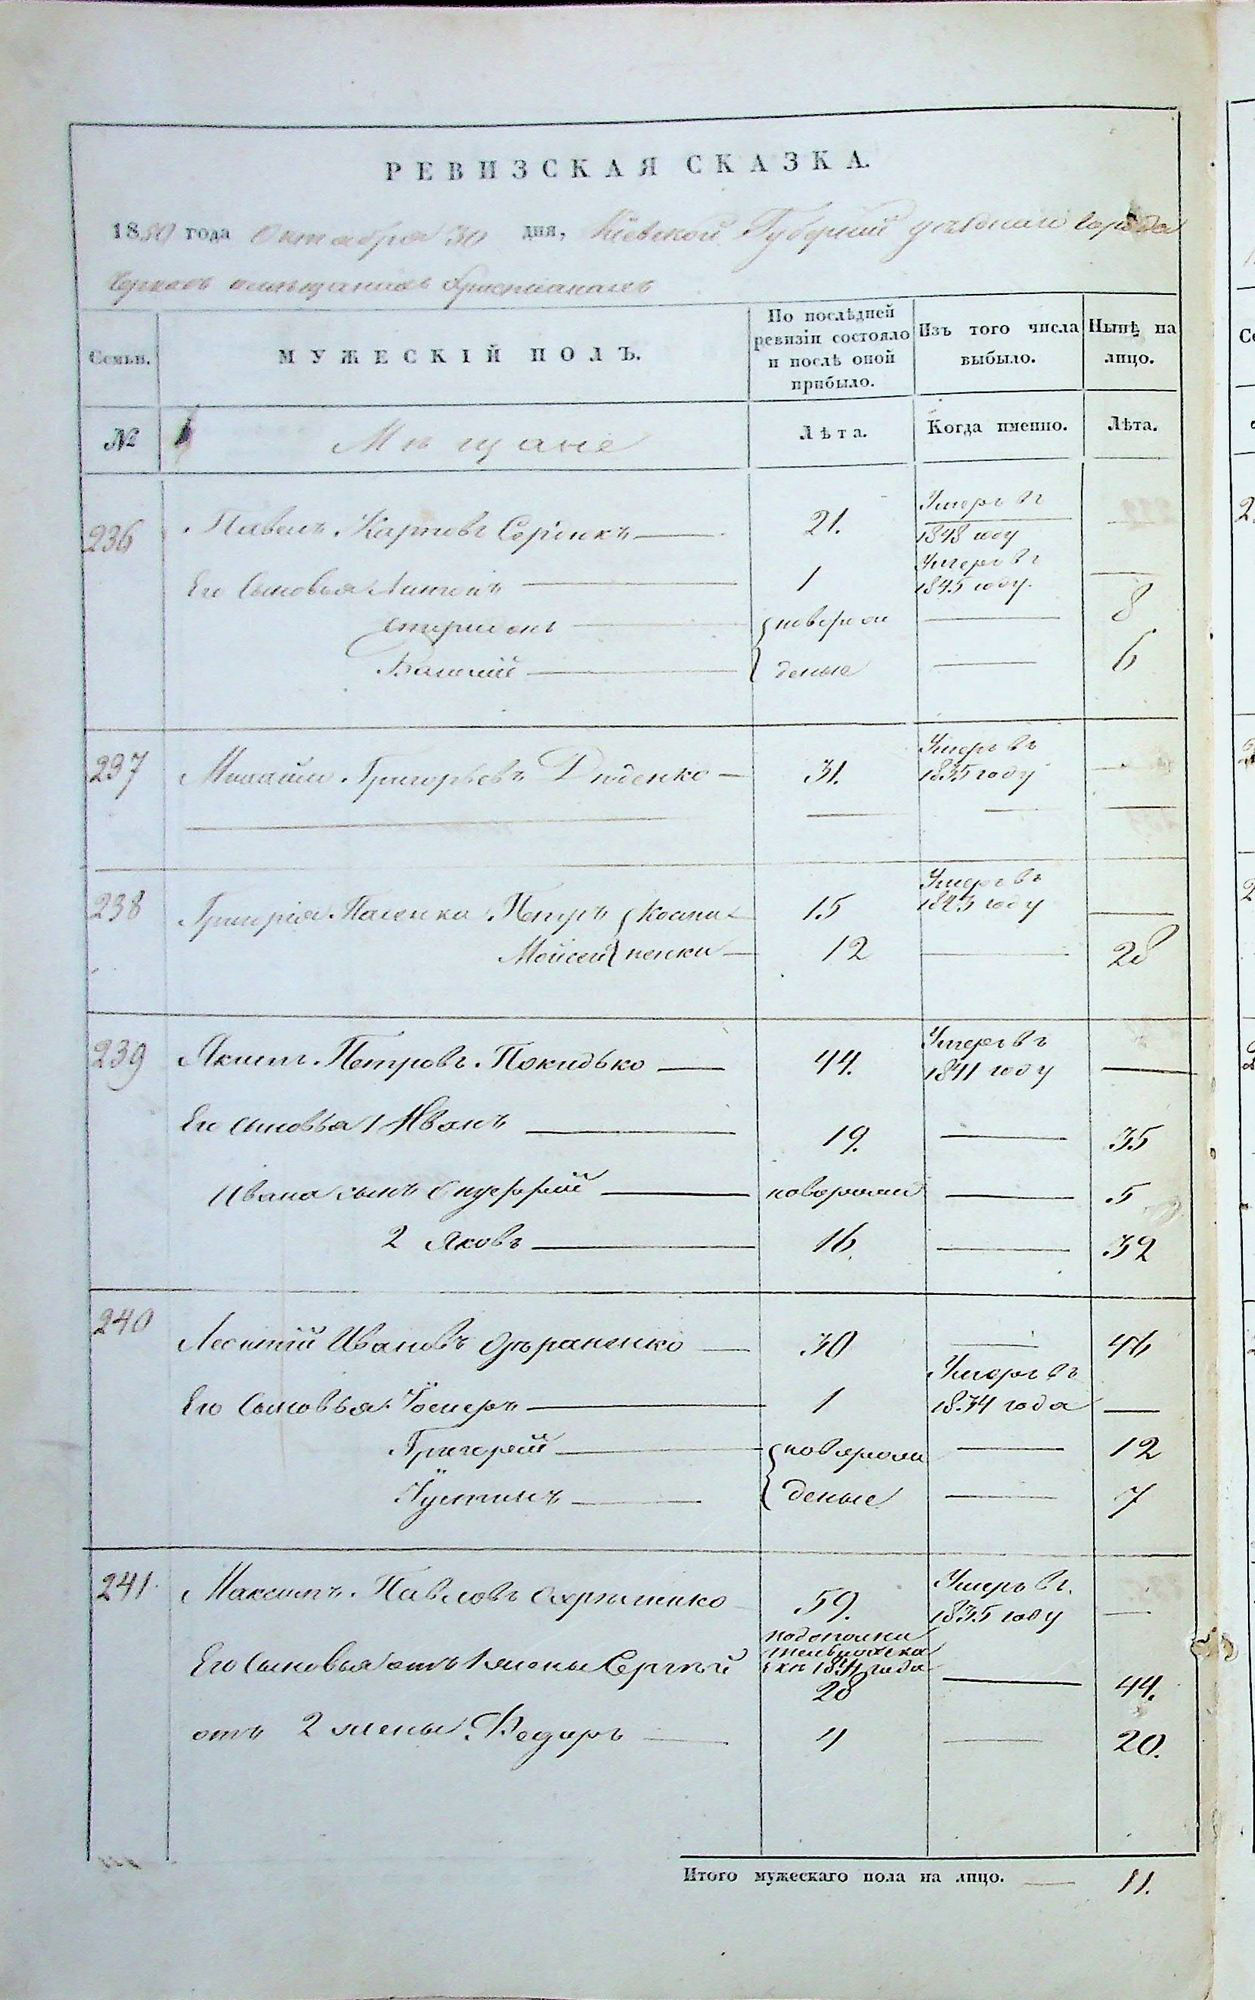 РЕВИЗСКАЯ СКАЗКА.
1850 года Октября 30 дня, Кіевской Губерніи уезднаго города
Черкасъ мещанъ христіанъ
Семьи. МУЖЕСКІЙ ПОЛЪ. По послѣдней ревизіи состояло и послѣ оной прибыло. Изъ того числа выбыло. Нынѣ на лицо.
№ Мещане Лѣта. Когда именно. Лѣта.
236 Павелъ Карповъ 21. Умеръ въ 1848 году
Его сыновья Антонъ 1 Умеръ въ 1845 году.
новорож 8
Василий деные 6
237 Михайло Григорьевъ Диденко 31. Умеръ въ 1835 году
238 Григорія Петръ Косты 15 Умеръ въ 1843 году
Мойсей пенки 12 28
239 Якимъ Петровъ Покидько 44. Умеръ въ 1841 году
Его сыновья 1 Иванъ 19. 35
Ивана сынъ Онуфрій новорожд 5
2 Яковъ 16. 32
240 Леонтій Ивановъ 30 46
Его сыновья Іосифъ 1 Умеръ въ 1834 года
Григорій новорож 12
Іустинъ деные 7
241 Максимъ Павловъ Охрименко 59. Умеръ въ 1835 году
Его сыновья отъ 1 жены Сергѣй 28 44.
отъ 2 жены Федоръ 4 20.
Итого мужескаго пола на лицо. 11.